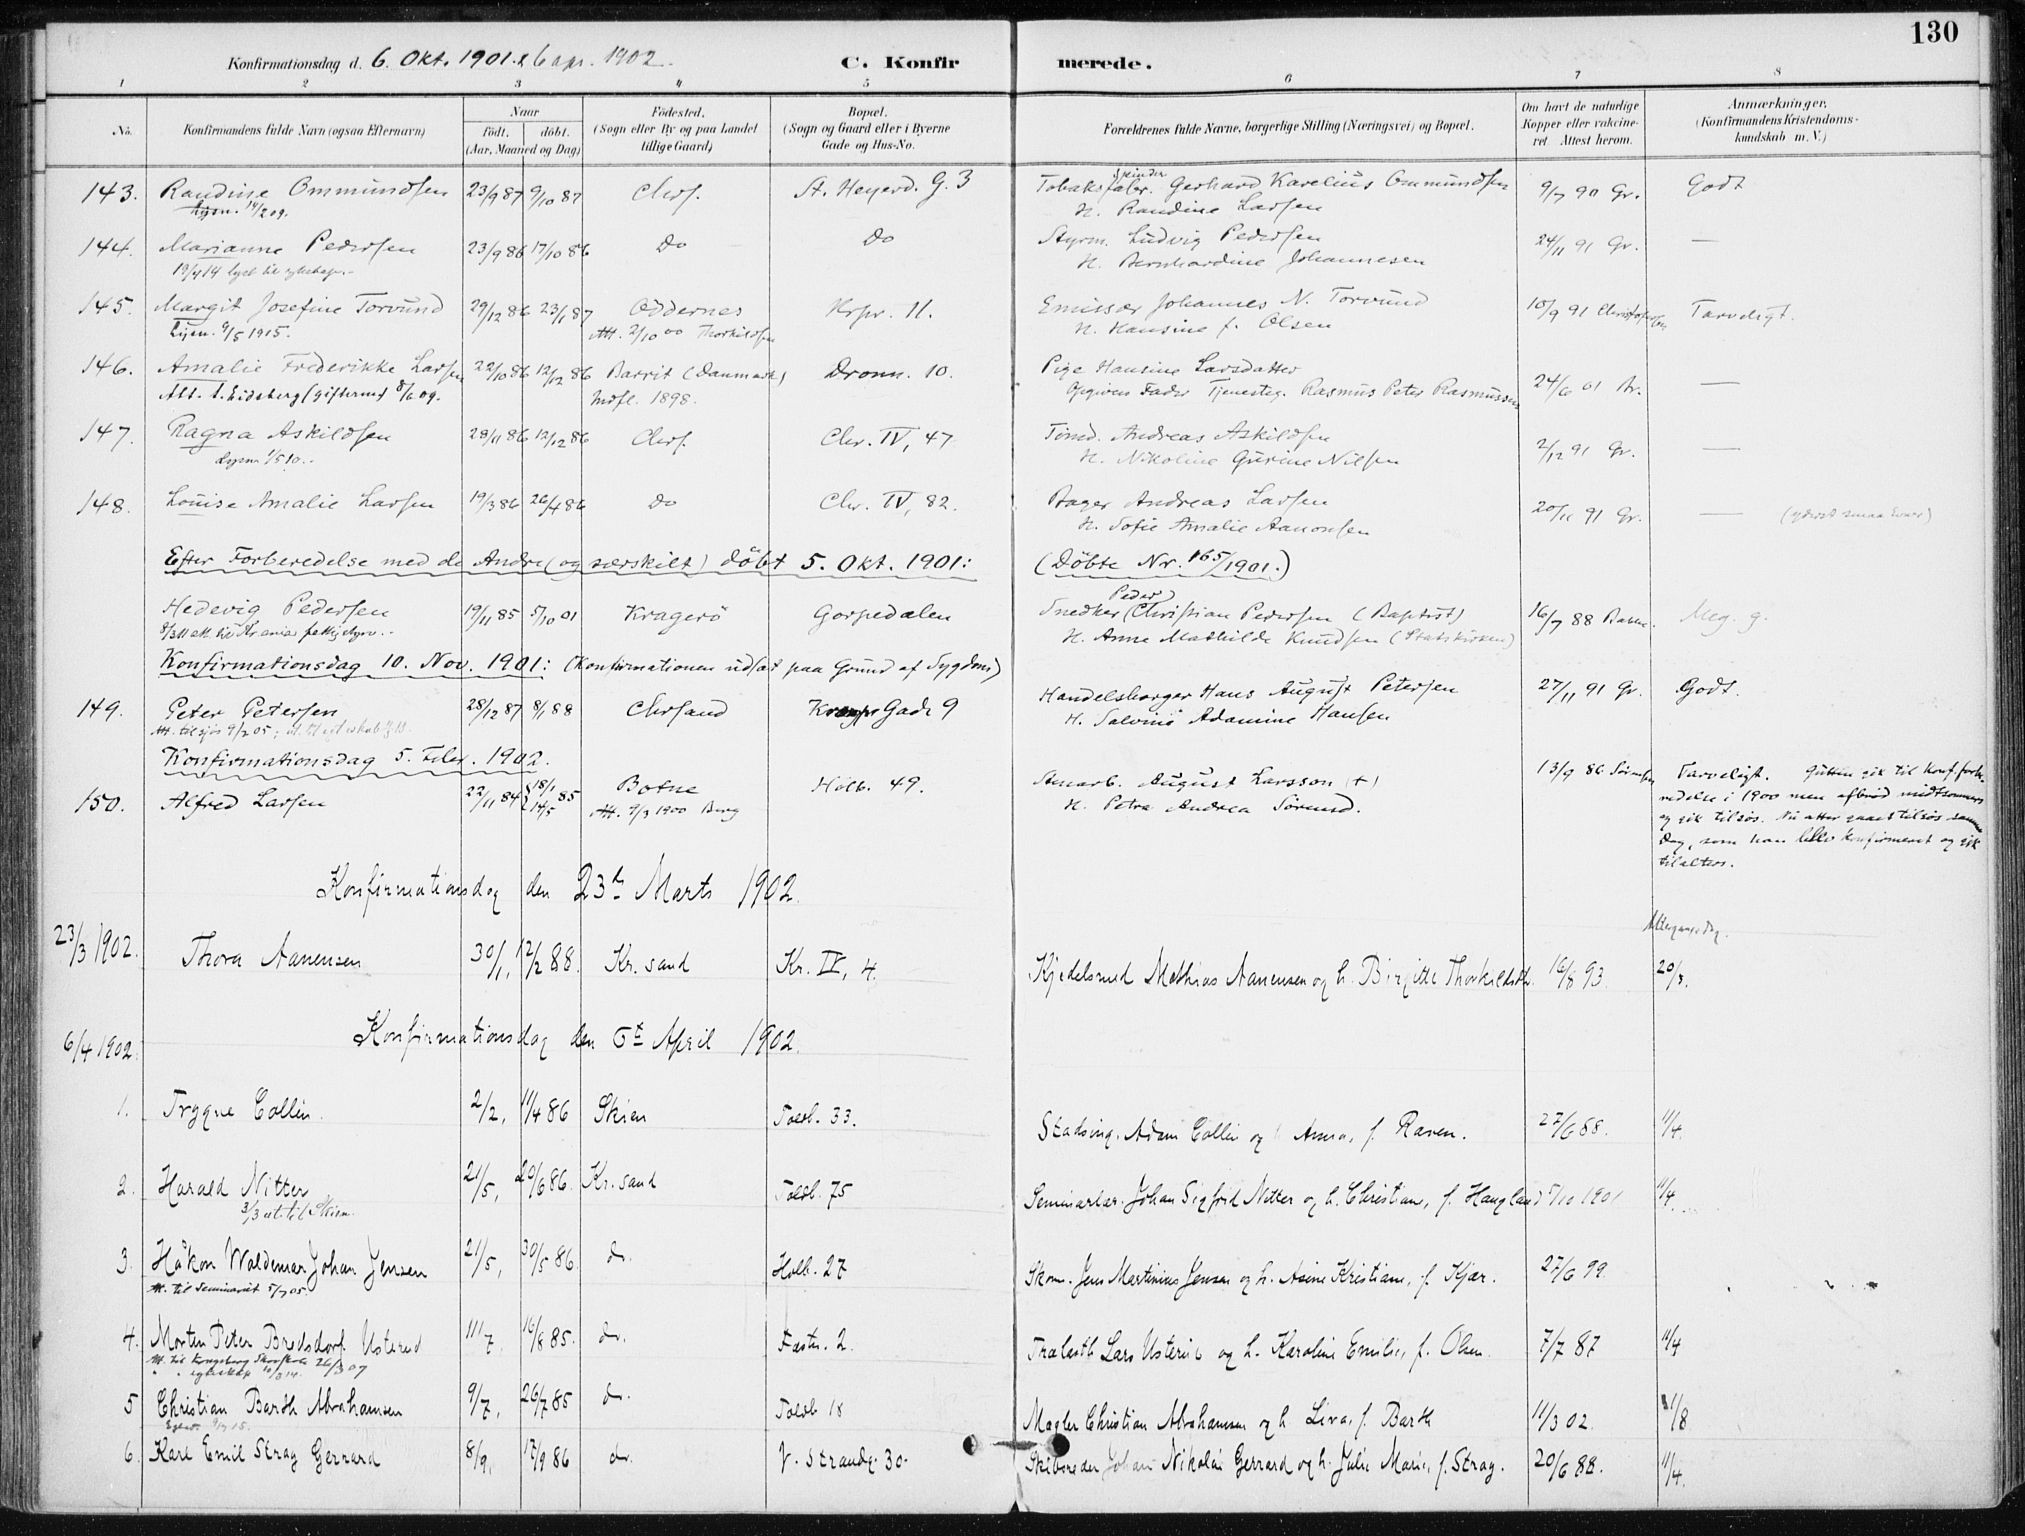 130
Konfirmationsdag d. 6. Okt. 1901. & 6 apr. 1902. C. Konfirmerede.
1 2 3 4 5 6 7 8
No. Konfirmandens fulde Navn (ogsaa Efternavn) Naar født. døbt. (Aar, Maaned og Dag) Fødested. (Sogn eller By og paa Landet tillige Gaard) Bopæl. (Sogn og Gaard eller i Byerne Gade og Hus-No. Forældrenes fulde Navne, borgerlige Stilling (Næringsvei) og Bopæl. Om havt de naturlige Kopper eller vakcineret. Attest herom. Anmærkninger. (Konfirmandens Kristendomskundskab m. V.)
143. Randine Ommundsen 23/9 87 9/10 87 Chrs. St. Heyerd. G. 3 Tobaksspinder Gerhard Karelius Ommundsen 9/7 90 Gr. Godt
Lysn. 14/2 09. H. Randine Larsen
144. Marianne Pedersen 23/9 86 17/10 86 Do Do Styrm. Ludvig Pedersen 24/11 91 Gr. —
H. Bernhardine Johannesen
145. Margit Josefine Torvund 29/12 86 23/1 87 Oddernes Krpr. 11. Emissær Johannes N. Torvund 10/9 91 Tarveligt.
Lysn. 9/5 1915. Att. 2/10 00 Thorkildsen H. Hansine f. Olsen
146. Amalie Frederikke Larsen 22/10 86 12/12 86 Barrit (Danmark) Dronn. 10. Pige Hansine Larsdatter 24/6 01 —
Att. t. Eidsberg (giftermål) 8/6 09. Indfl. 1898. Opgiven Fader Tjenesteg. Rasmus Peter Rasmussen
147. Ragna Askildsen 28/11 86 12/12 86 Chrs. Chr. IV, 47 Tømd. Andreas Askildsen 2/12 91 Gr. —
Lysn. 1/5 10. H. Nikoline Gurine Nilsen
148. Louise Amalie Larsen 19/3 86 26/4 86 Do Chr. IV, 82. Bager Andreas Larsen 20/11 91 Gr. —
H. Sofie Amalie Aanonsen
Efter Forberedelse med de Andre (og særskilt) døbt 5. Okt. 1901: (Døbte Nr. 165/1901.)
Hedevig Pedersen 19/11 85 5/10 01 Kragerø Gorpedalen Snedker (Peder) Christian Pedersen (Baptist) 16/7 88 Meg. g.
H. Anne Mathilde Knudsen (Statskirken)
Konfirmationsdag 10. Nov. 1901: (Konfirmationen udsat paa Grund af Sygdom)
149. Peter Petersen 28/12 87 8/1 88 Chrsand Gade 9 Handelsborger Hans August Petersen 27/11 91 Gr. Godt.
Att. til sjøs 9/2 05; H. Salvine Adamine Hansen
Konfirmationsdag 5. Febr. 1902.
150. Alfred Larsen 22/11 84 18/1 14/5 85 Botne Holb. 49. August Larsson (+) 13/9 86 Sørensen Tarveligt. Gutten gik til Konf.forberedelse i 1900 men afbrød midtsommers
Att. 9/3 1900 Berg H. Petra Andrea Sørensd. og gik tilsøs. Nu atter gaaet tilsøs samme
Dag, som han blev konfirmeret og gik
tilalters.
Konfirmationsdag den 23de Marts 1902.
23/3 1902. Thora Aanensen 30/1, 12/2 88. Kr.sand Kr. IV, 4. Kjedelsmed Mathias Aanensen og h. Birgitte Thorkildsdtr. 16/8 93. 20/8.
Altergangsdag.
6/4 1902. Konfirmationsdag den 6te April 1902.
1. Trygve Collin. 2/2, 11/4 86 Skien Toldb. 33. Stadsing. Adam Collin og h. Anna, f. Raven. 27/6 88. 11/4.
2. Harald Nitter 21/5, 20/6 86. Kr.sand Toldb. 75 Seminarlær. Johan Sigfrid Nitter og h. Christiane, f. Haugland 5/10 1901 11/4.
3/3 att. til Skien.
3. Håkon Waldemar Johan Jensen 21/5, 30/5 86. do. Holb. 27 Skom. Jens Martinius Jensen og h. Asine Kristiane, f. Kjær. 27/6 99.
Att. til Seminariet 5/7 05.
4. Morten Peter Bredsdorf Usterud 11/7 16/8 85. do. Fæstn. 2. Trælasth. Lars Usterud og h. Karoline Emilie, f. Olsen. 7/7 87 11/4
Att. til Kongsberg Skovskole 26/3 07
" " egteskap 10/3 14.
5 Christian Barth Abrahamsen 9/7, 26/7 85 do. Toldb 18 Mægler Christian Abrahamsen og h. Liva, f. Barth 11/3 02. 31/8
6. Karl Emil Stray Gerrard 8/9, 17/9 86 do. V. Strandg. 30. Skibsreder Johan Nikolai Gerrard og h. Julie Marie, f. Stray. 20/6 88. 11/4.